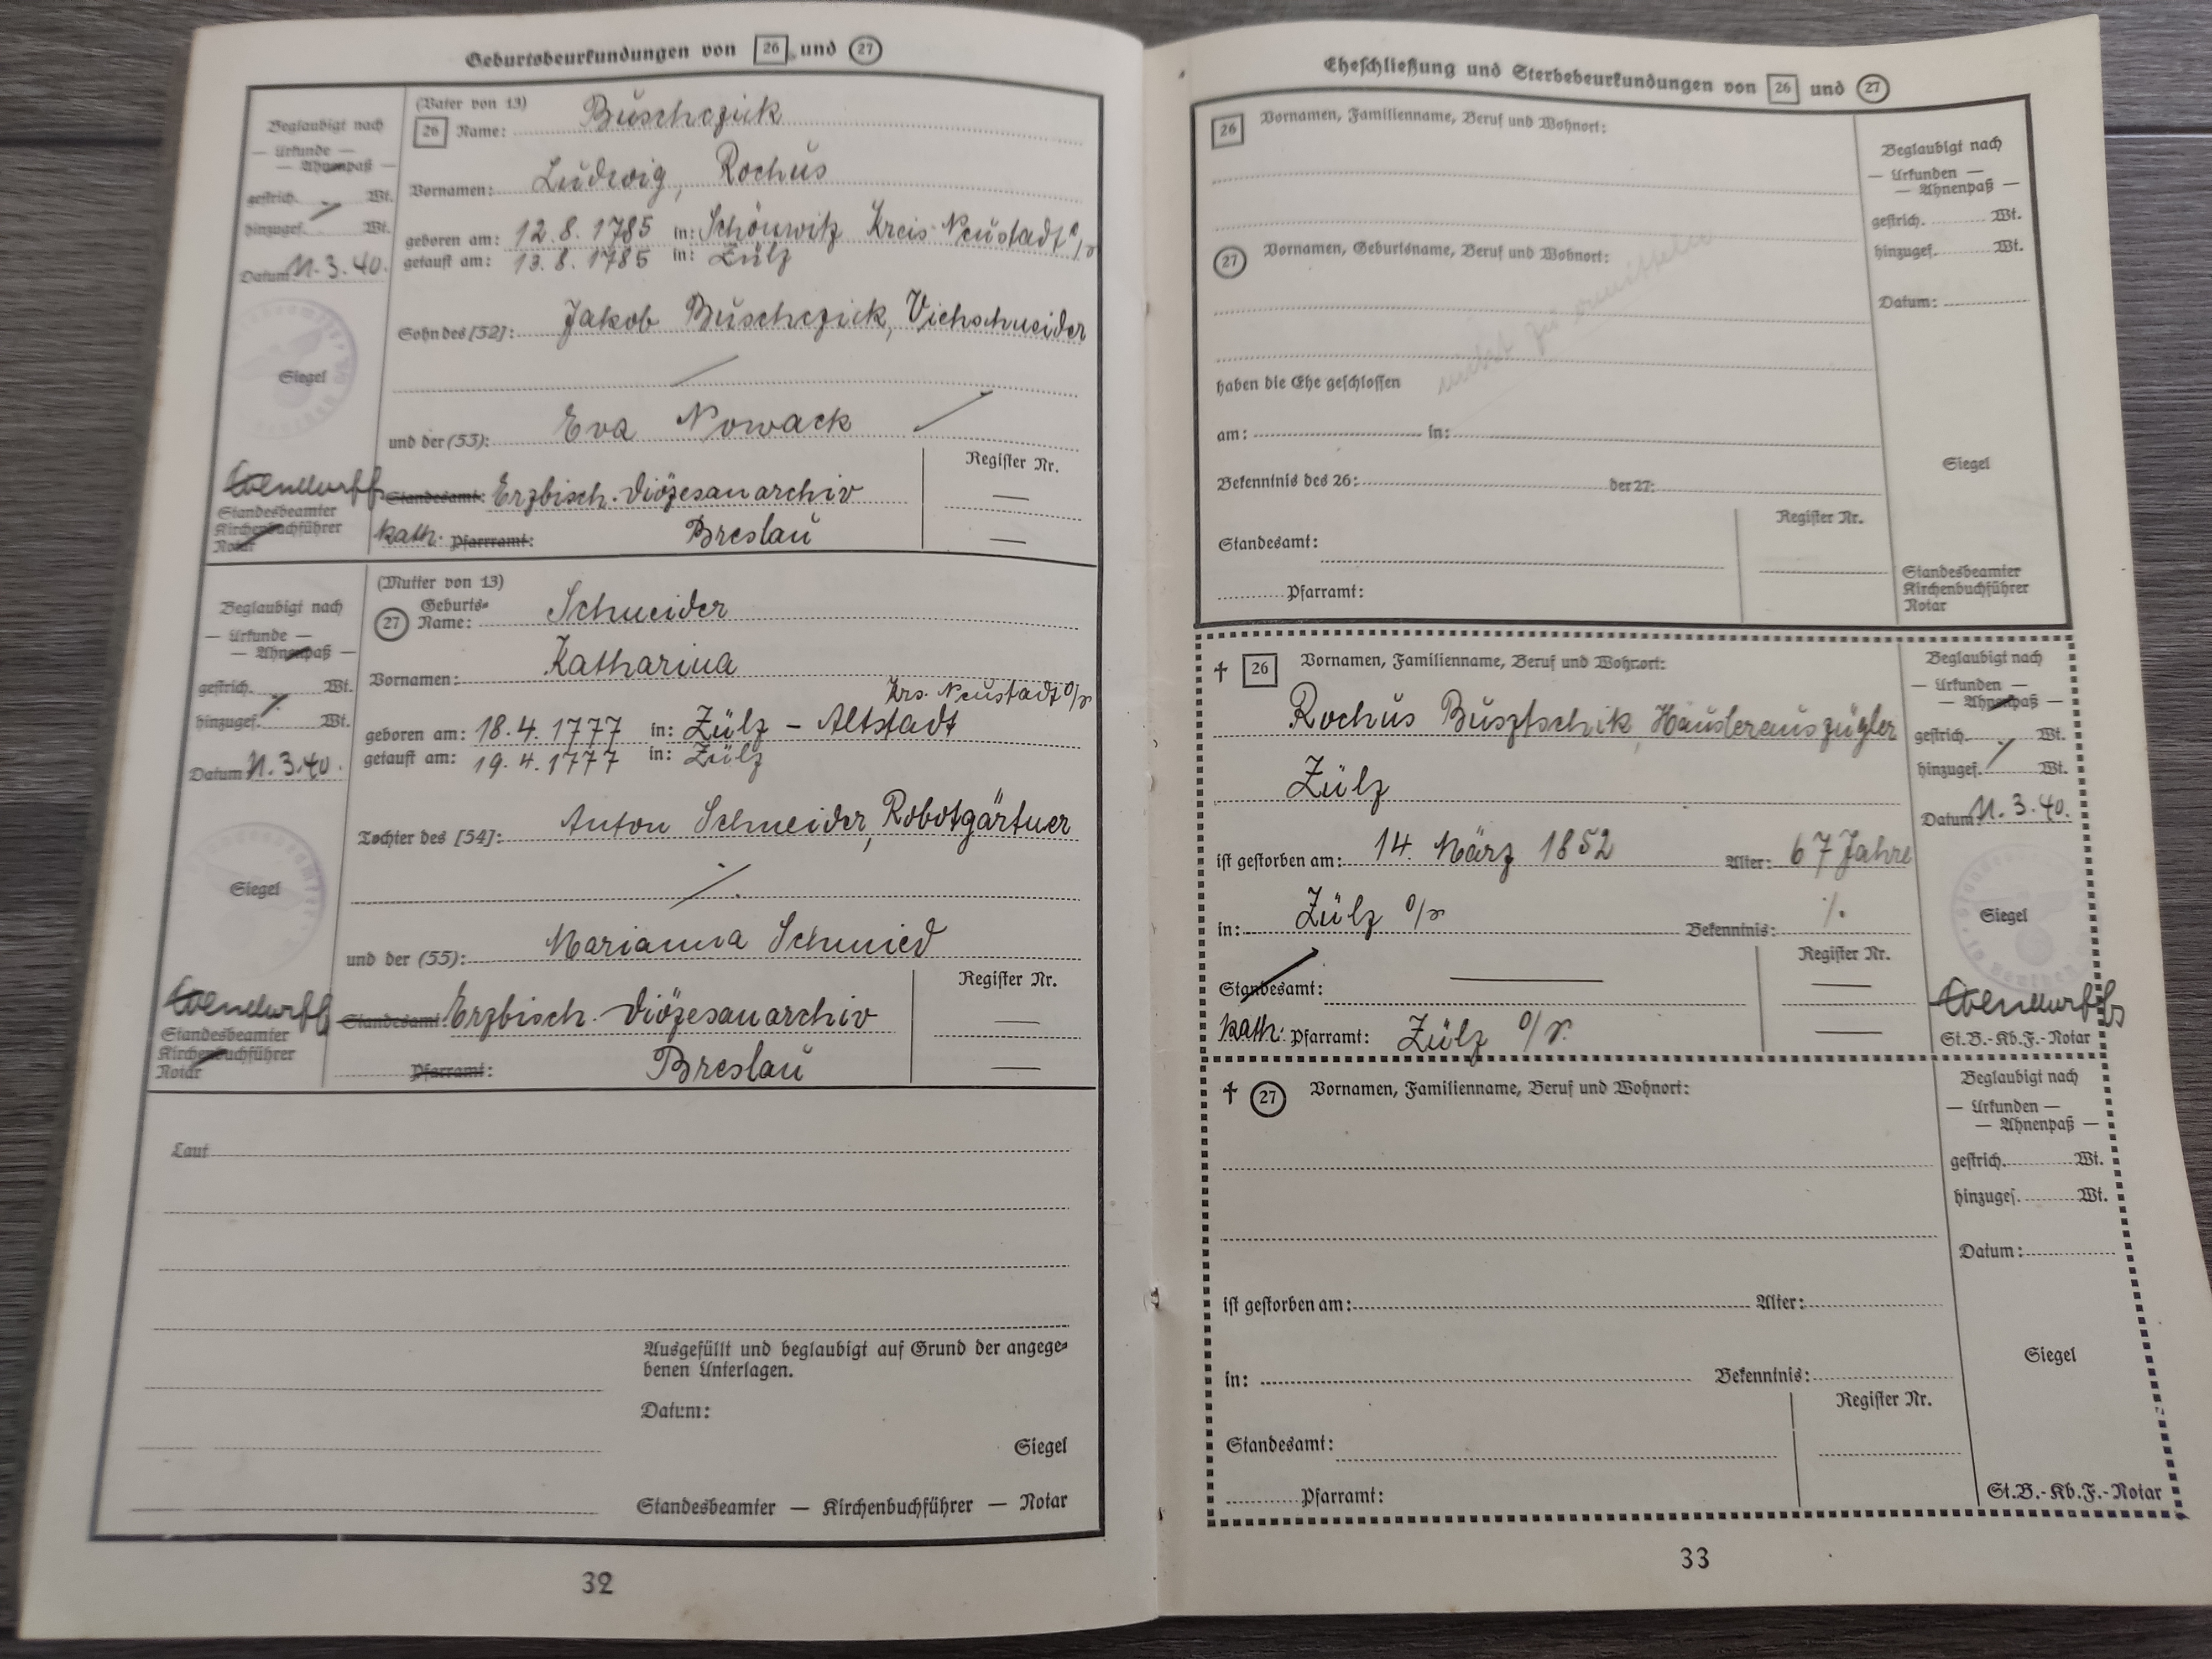 Geburtsbeurkundungen von 26 und 27
Beglaubigt nach
— Urkunde —
— Ahnenpaß —
gestrich. Wt.
hinzugef. Wt.
Datum 11.3.40.
Siegel
Standesbeamter
Kirchenbuchführer
Notar
(Vater von 13)
26 Name: Buschczik
Vornamen: Ludwig, Rochus
geboren am: 12.8.1785 in: Schönwitz Kreis Neustadt O/S
getauft am: 13.8.1785 in: Zülz
Sohn des [52]: Jakob Buschczick, Viehschneider
und der (53): Eva Nowack
Register Nr.
Standesamt: Erzbisch. Diözesanarchiv —
kath. Pfarramt: Breslau —
Beglaubigt nach
— Urkunde —
— Ahnenpaß —
gestrich. Wt.
hinzugef. Wt.
Datum 11.3.40.
Siegel
Standesbeamter
Kirchenbuchführer
Notar
(Mutter von 13)
27 Geburts-
Name: Schneider
Vornamen: Katharina
Krs. Neustadt O/S
geboren am: 18.4.1777 in: Zülz - Altstadt
getauft am: 19.4.1777 in: Zülz
Tochter des [54]: Anton Schneider, Robotgärtner
und der (55): Marianna Schmied
Register Nr.
Standesamt: Erzbisch. Diözesanarchiv —
Pfarramt: Breslau —
Laut
Ausgefüllt und beglaubigt auf Grund der angege-
benen Unterlagen.
Datum:
Siegel
Standesbeamter — Kirchenbuchführer — Notar
32
Eheschließung und Sterbebeurkundungen von 26 und 27
26 Vornamen, Familienname, Beruf und Wohnort:
27 Vornamen, Geburtsname, Beruf und Wohnort:
nicht zu ermitteln
haben die Ehe geschlossen
am: in:
Bekenntnis des 26: der 27:
Register Nr.
Standesamt:
Pfarramt:
Beglaubigt nach
— Urkunden —
— Ahnenpaß —
gestrich. Wt.
hinzugef. Wt.
Datum:
Siegel
Standesbeamter
Kirchenbuchführer
Notar
† 26 Vornamen, Familienname, Beruf und Wohnort:
Rochus Busztschik, Häuslerauszügler
Zülz
ist gestorben am: 14. März 1852 Alter: 67 Jahre
in: Zülz O/S Bekenntnis: ./.
Register Nr.
Standesamt: — —
kath. Pfarramt: Zülz O/S. —
Beglaubigt nach
— Urkunden —
— Ahnenpaß —
gestrich. Wt.
hinzugef. Wt.
Datum 11.3.40.
Siegel
St.B.-Kb.F.-Notar
† 27 Vornamen, Familienname, Beruf und Wohnort:
ist gestorben am: Alter:
in: Bekenntnis:
Register Nr.
Standesamt:
Pfarramt:
Beglaubigt nach
— Urkunden —
— Ahnenpaß —
gestrich. Wt.
hinzugef. Wt.
Datum:
Siegel
St.B.-Kb.F.-Notar
33